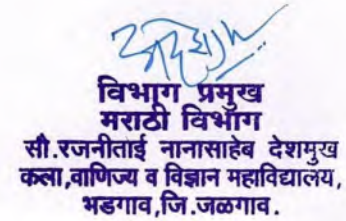 विभाग प्रमुख
मराठी विभाग
सौ.रजनीताई नानासाहेब देशमुख
कला,वाणिज्य व विज्ञान महाविद्यालय,
भडगाव,जि.जळगाव.